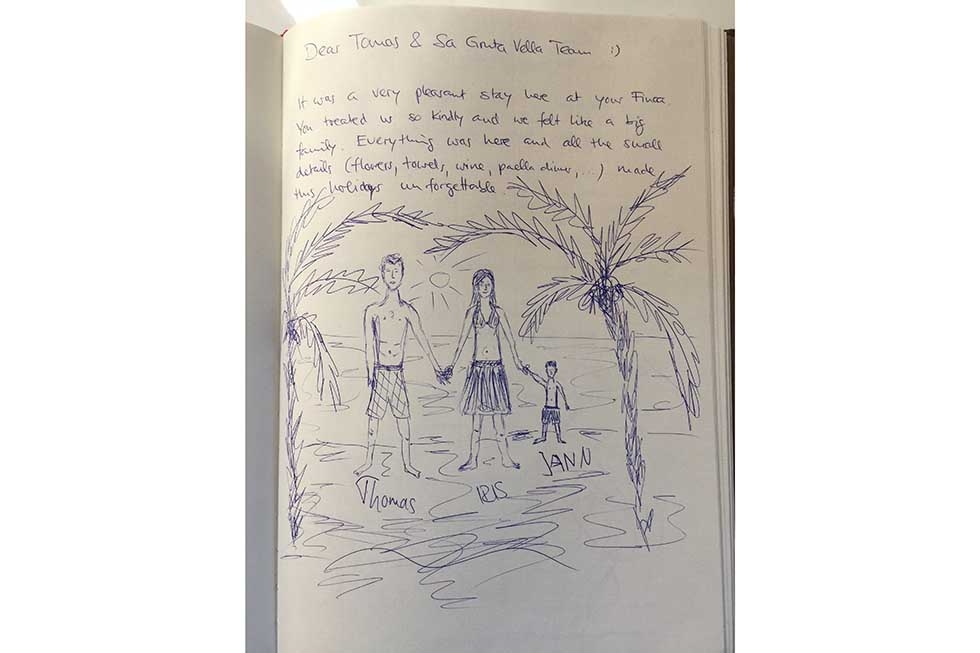 Dear Tomas & Sa Gruta Vella Team :)
It was a very pleasant stay here at your Finca.
You treated us so kindly and we felt like a big
family. Everything was here and all the small
details (flowers, towels, wine, paella dinner, ...) made
this holidays unforgettable.
Thomas
IRIS
JANN